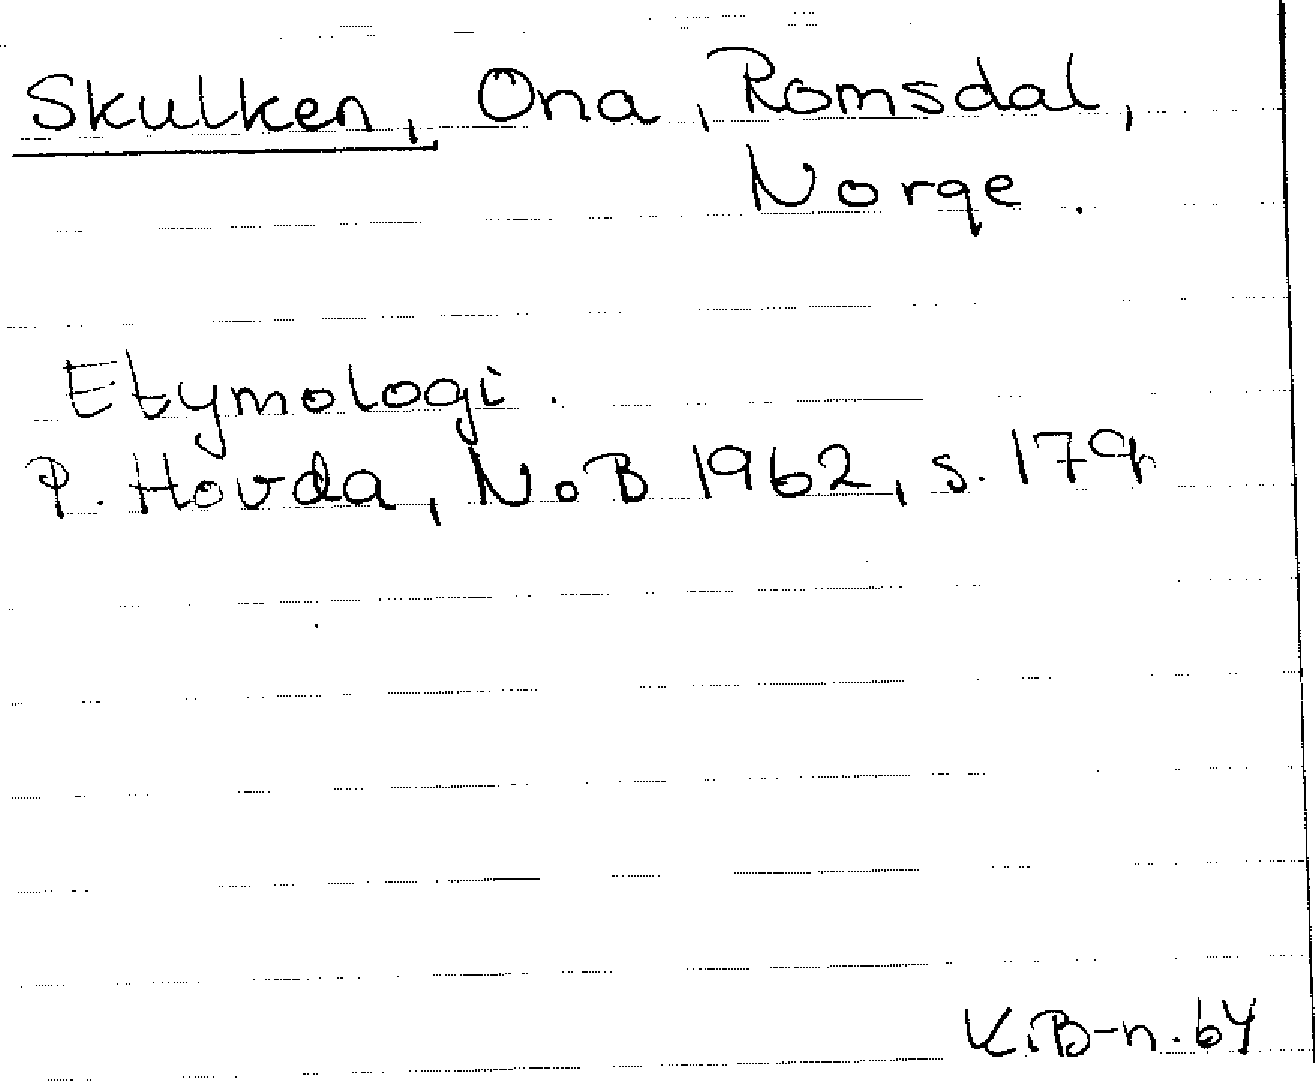 Skulken, Ona, Romsdal,
Norge.
Etymologi.
P. Hovda, NoB 1962, s. 179
K.B-n. 64